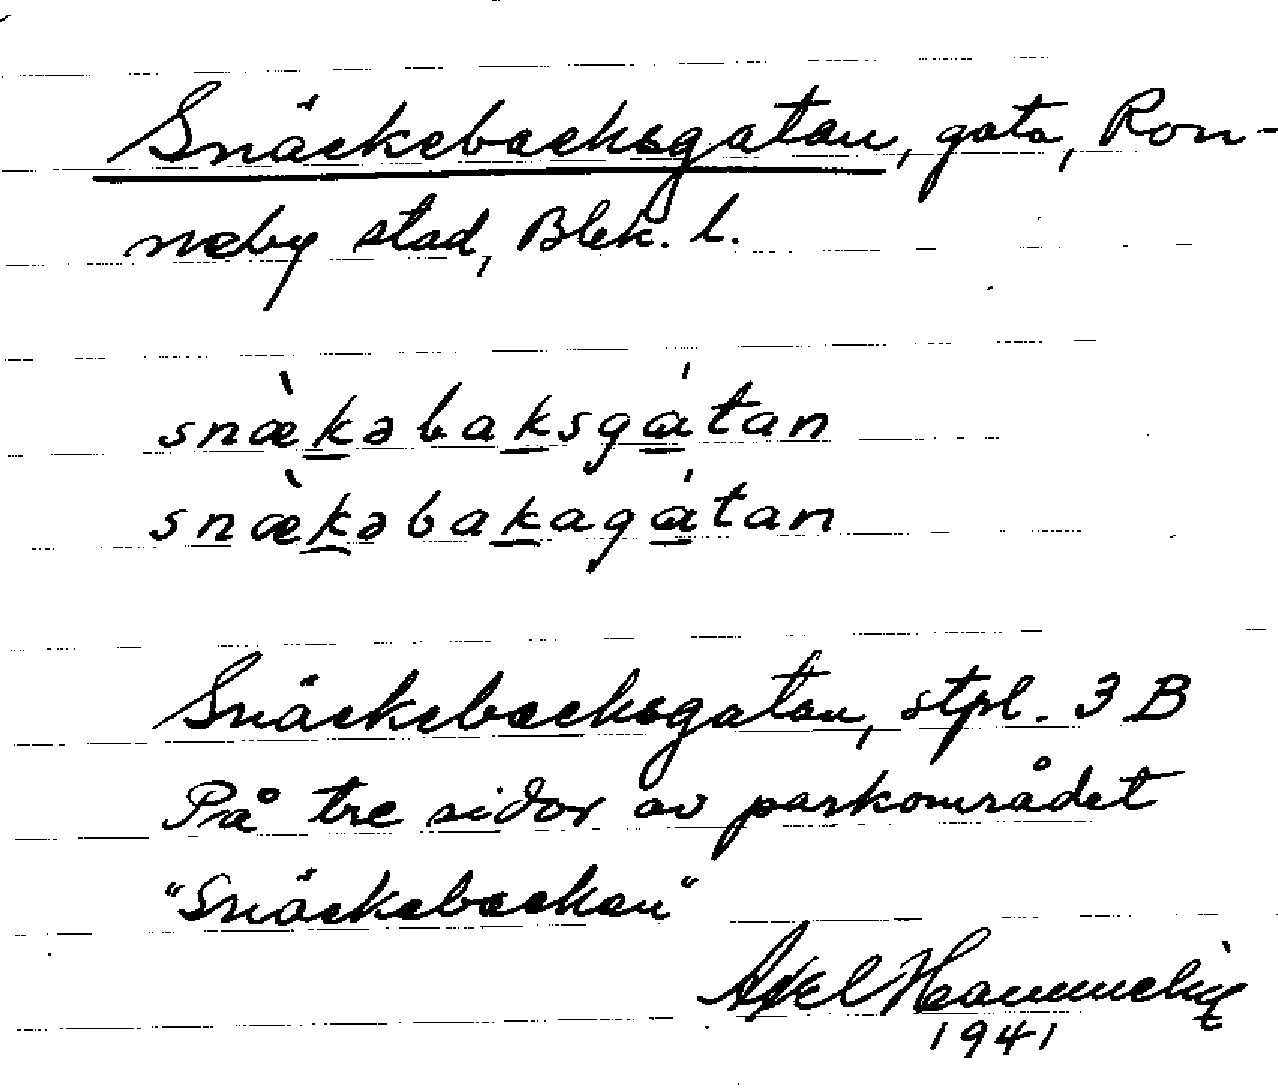 Snäckebacksgatan, gata, Ron-
neby stad, Blek. l.
snæ̀k̲əbak̲sgɑ̲́tan
snæ̀k̲əbak̲agɑ̲́tan
Snäckebacksgatan, stpl. 3 B
På tre sidor av parkområdet
"Snäckebacken"
Axel
1941